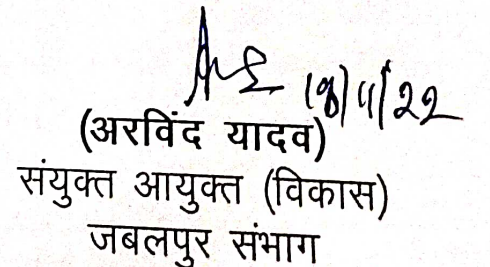 18/11/22
(अरविंद यादव)
संयुक्त आयुक्त (विकास)
जबलपुर संभाग